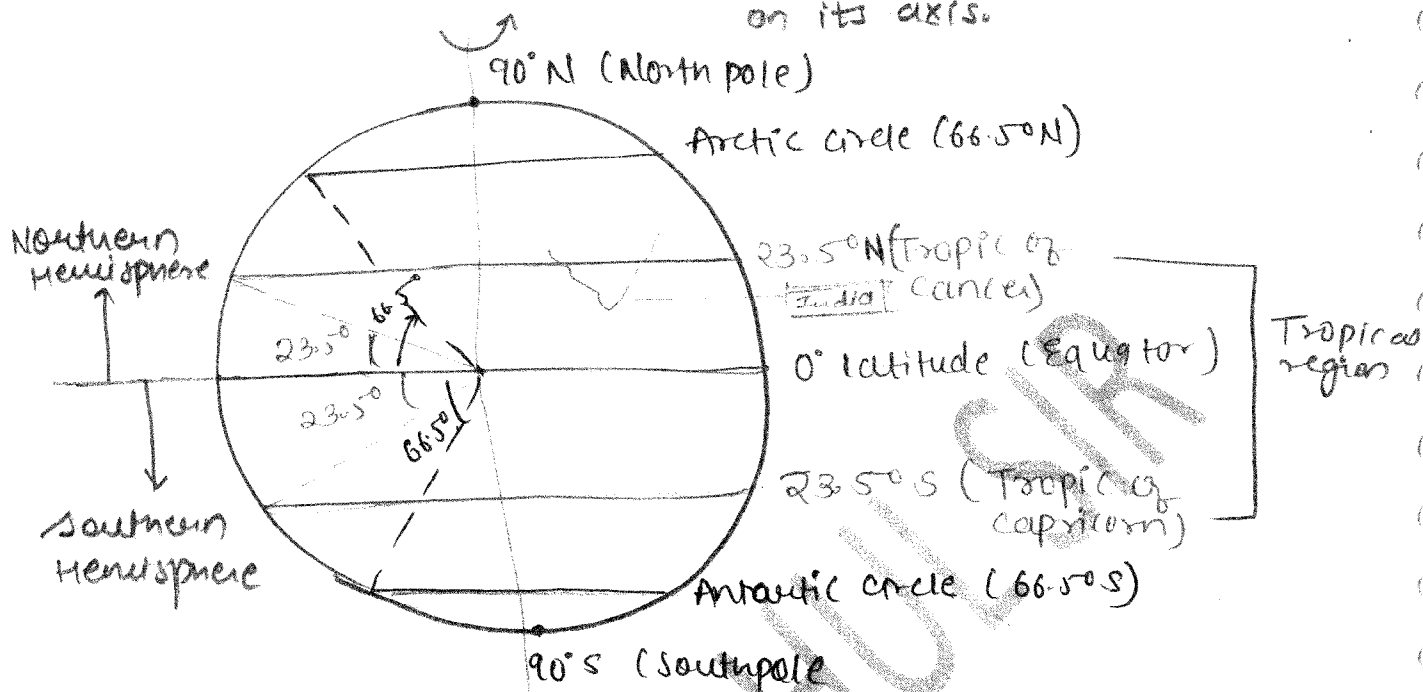 on its axis.
90° N (North pole)
Arctic circle (66.5°N)
Northern
Hemisphere
23.5°N (Tropic of
Cancer)
India
66.5
23.5°
0° latitude (Equator)
Tropical
region
23.5°
66.5°
23.5° S (Tropic of
Capricorn)
Southern
Hemisphere
Antartic circle (66.5°S)
90° S (Southpole
SIR